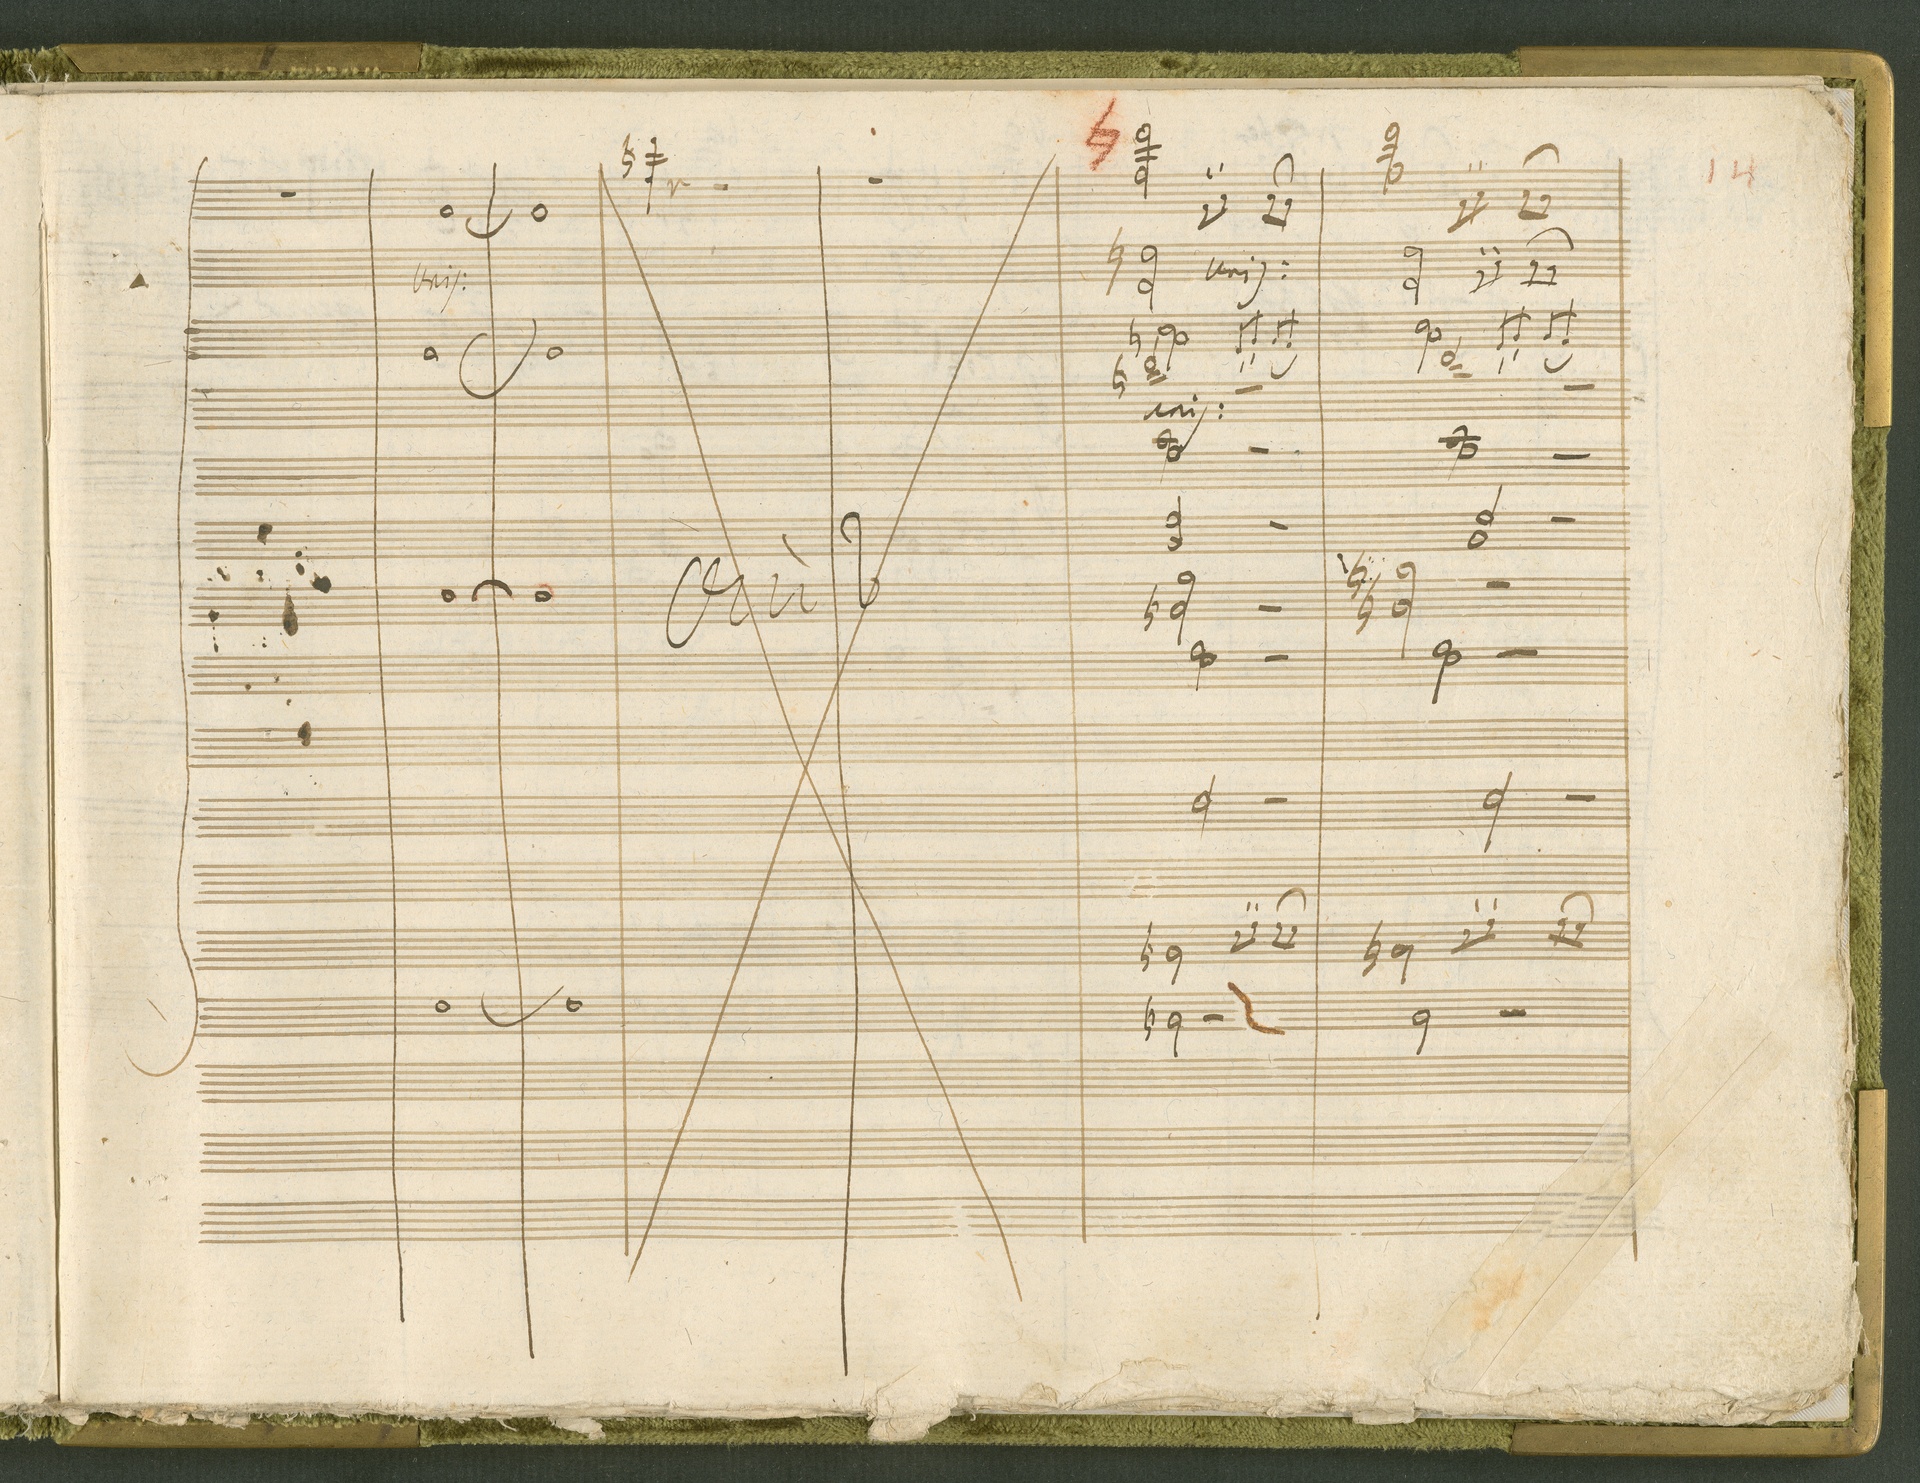 14
unis:
unis:
unis: